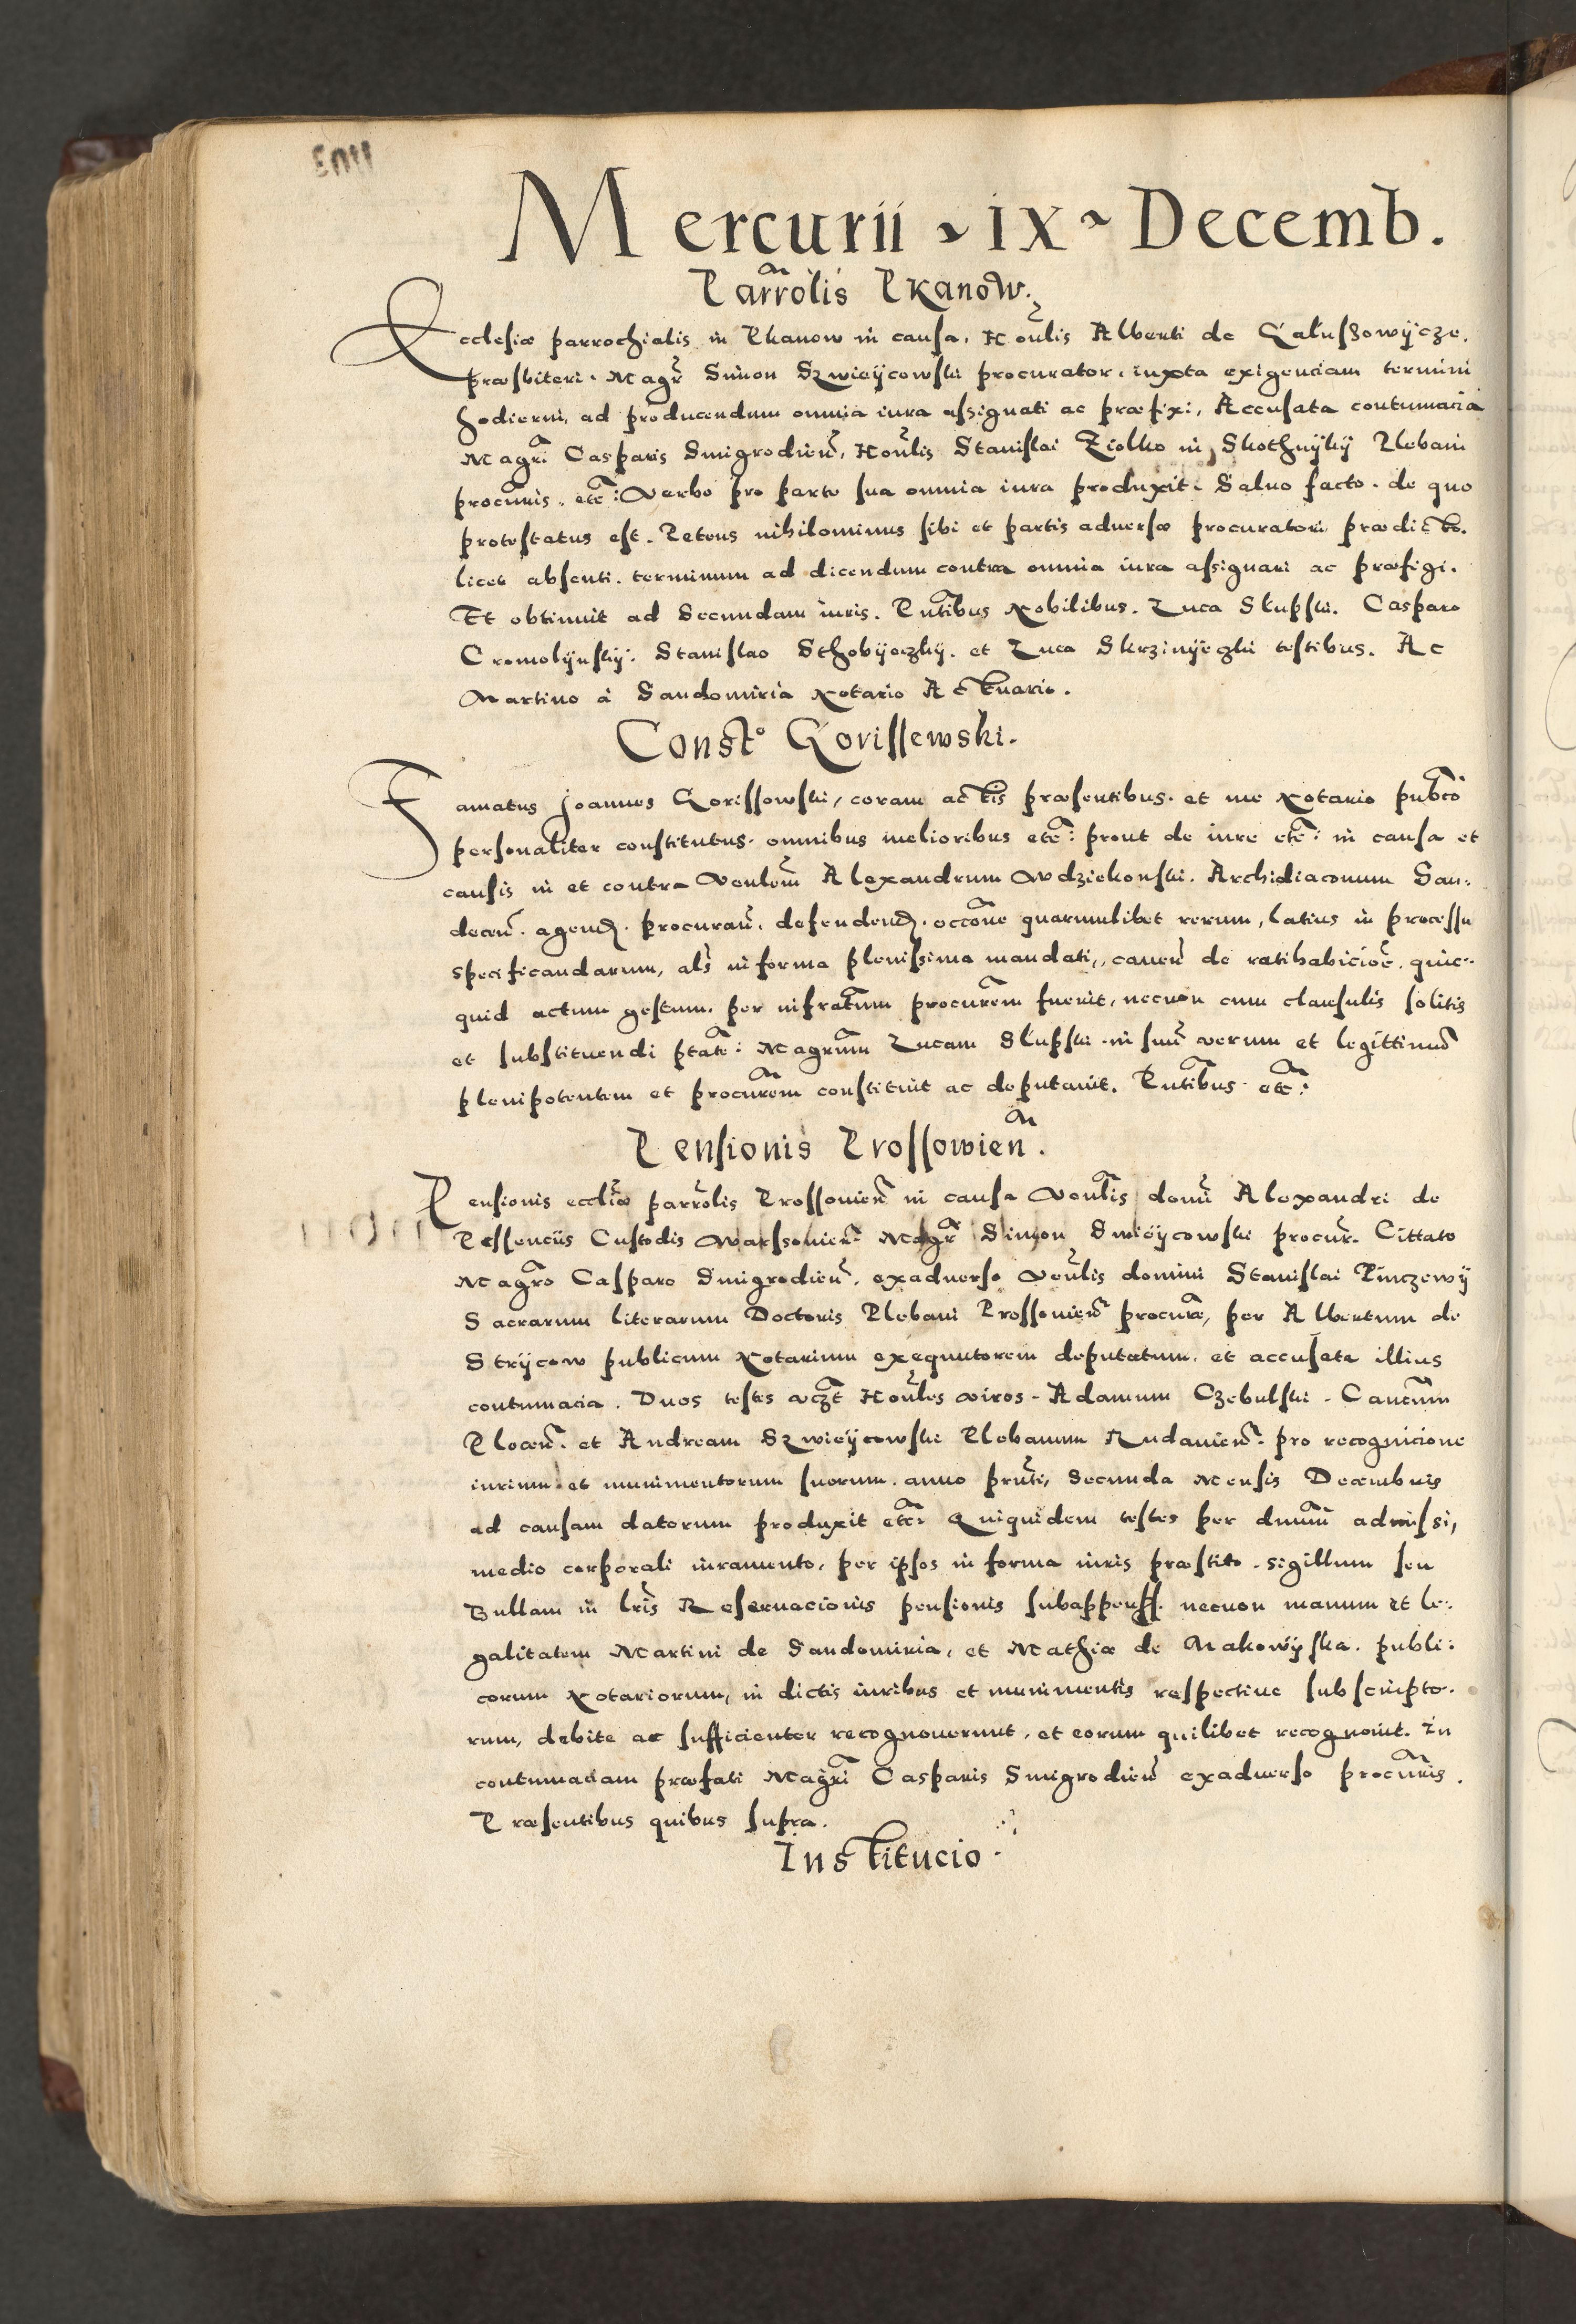 Mercurii IX Decemb.
Parrolis Pkanow.
Ecclesiæ parrochialis in Pkanow in causa, Honlis Alberti de Galuszowÿcze,
præsbiteri. Magr Simon Szwieÿcowski procurator, iuxta exigenciam termini
hodierni, ad producendum omnia iura assignati ac præfixi, Accusata contumacia
Magri Casparis Smigrodien, Honlis Stanislai Ziolko in Skothnÿkÿ Plebani
procuris. etc: Verbo pro parte sua omnia iura produxit. Saluo facto. de quo
protestatus est. Petens nihilominus sibi et partis aduersæ procuratori prædicto.
licet absenti. terminum ad dicendum contra omnia iura assignari ac præfigi.
Et obtinuit ad Secundam iuris. Pntibus Nobilibus. Luca Slupski. Casparo
Cromolÿnskÿ. Stanislao Sthobÿeczkÿ. et Luca Skrzinÿeczki testibus. Ac
Martino à Sandomiria Notario Actuario.
Const° Gorissewski.
Famatus Joannes Gorissowski, coram actis præsentibus. et me Notario publco
personaliter constitutus. omnibus melioribus etc: prout de iure etc: in causa et
causis in et contra Venlem Alexandrum Wdziekonski. Archidiaconum San:
decen. agend. procuran. defendend. occone quarumlibet rerum, latius in processu
specificandarum, als in forma plenissima mandati,, cauen de ratihabicioe. quic-
quid actum gestum. per infratum procurem fuerit, necnon cum clausulis solitis
et substituendi ptate: Magrum Lucam Slupski in suu verum et legittimu
plenipotentem et procurem constituit ac deputauit. Pntibus etc:
Pensionis Prossowien.
Pensionis eccliæ parrolis Prossouien in causa Venlis domi Alexandri de
Pessenciis Custodis Warssouien Magr Simon Swieÿcowski procur. Cittato
Magro Casparo Smigrodien, exaduerso Venlis domini Stanislai Pinczewÿ
Sacrarum literarum Doctoris Plebani Prossouien procure, per Albertum de
Strÿcow publicum Notarium exequutorem deputatum, et accusata illius
contumacia. Duos testes vczt Honles viros - Adamum Czebulski - Cancum
Plocen. et Andream Szwieÿcowski Plebanum Rudauien. pro recognicione
iurium et munimentorum suorum. anno prnti, Secunda Mensis Decembris
ad causam datorum produxit etc: Quiquidem testes per dnum admissi,
medio corporali iuramento, per ipsos in forma iuris præstito. sigillum seu
Bullam in lris Reseruacionis pensionis subappenss. necnon manum et le:
galitatem Martini de Sandomiria, et Mathiæ de Makowÿska. publi:
corum Notariorum, in dictis iuribus et munimentis respectiue subscripto.
rum, debite ac sufficienter recognouerunt, et eorum quilibet recognouit. In
contumaciam præfati Magri Casparis Smigrodien exaduerso procuris.
Præsentibus quibus supra.
Institucio.